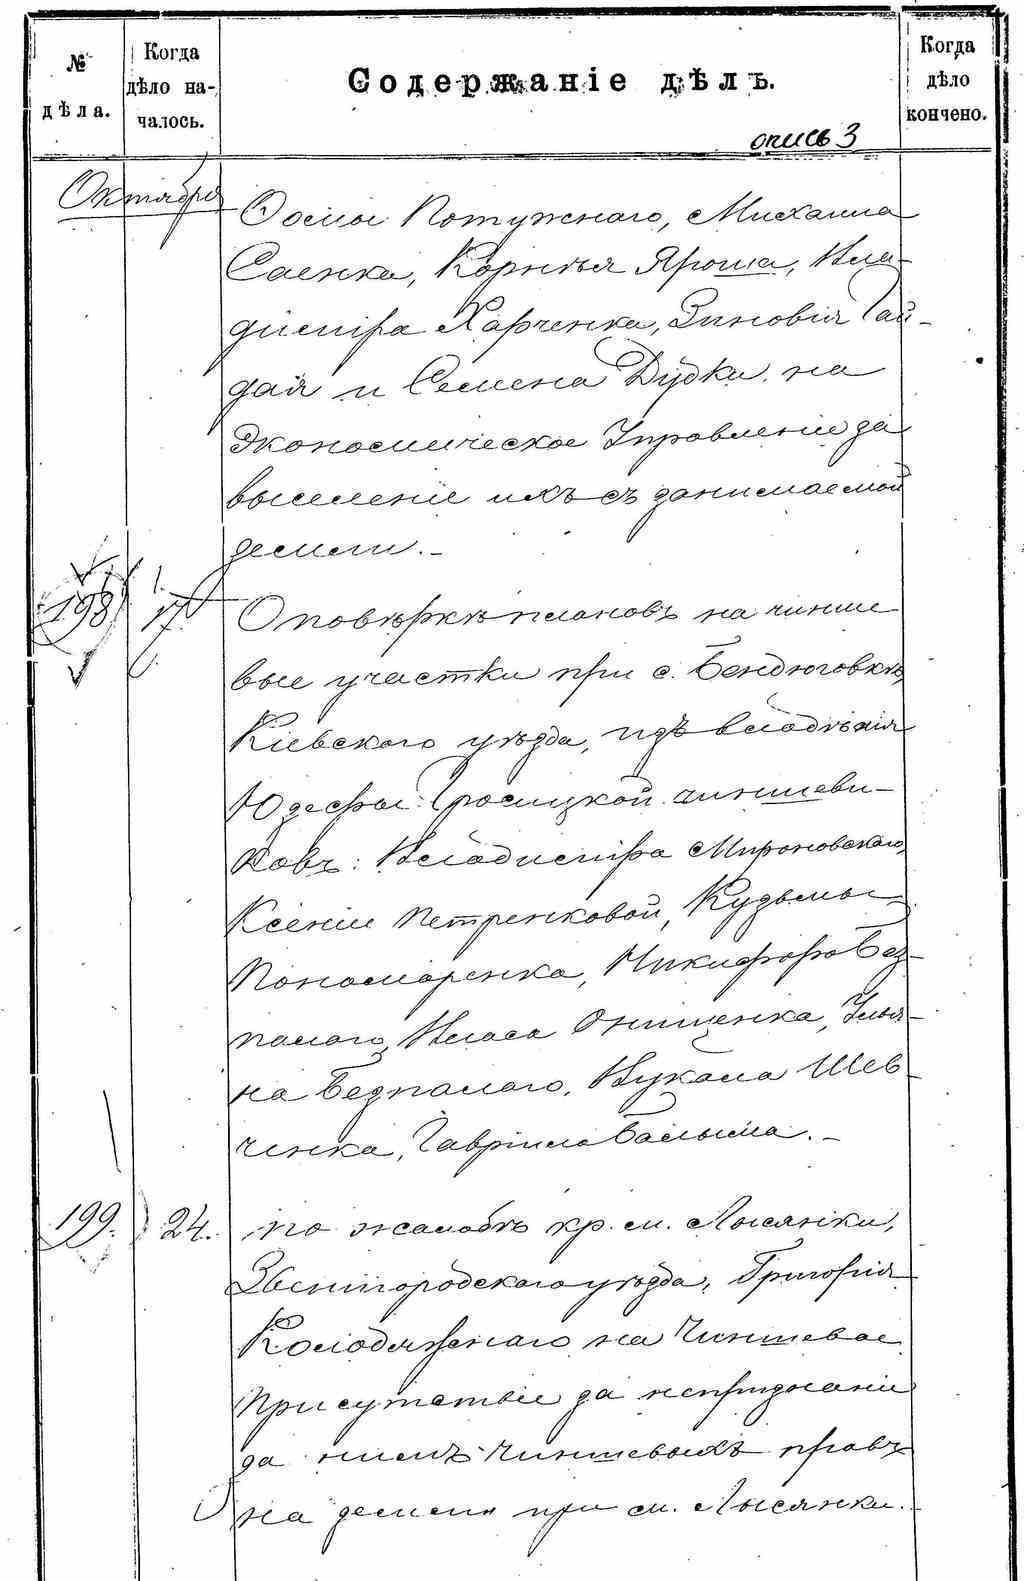 № дѣла.
Когда дѣло началось.
Содержаніе дѣлъ.
Когда дѣло кончено.
опись 3
Октября
Фомы Потужнаго, Михаила
Саенка, Корнѣя Яроша, Вла-
диміра Харченка, Зиновія Гай-
дая и Семена Дудки на
Экономическое Управленіе за
выселеніе ихъ съ занимаемой
земли.-
198
17.
О повѣркѣ плановъ на чинше
вые участки при с. Бендюговкѣ,
Кіевскаго уѣзда, изъ владѣнія
Юзефы чиншеви-
ковъ: Владиміра Мироновскаго,
Ксеніи Петренковой, Кузьмы
Пономаренка, Никифора Без-
палаго, Власа Онищенка, Улья-
на Безпалаго, Вукола Шев-
ченка, Гавріила Балыма.-
199.
24.
по жалобѣ кр. м. Лысянки,
Звенигородскаго уѣзда, Григорія
Колодяжнаго на Чиншевое
Присутствіе за непризнаніе
за нимъ чиншевыхъ правъ
на земли при м. Лысянки.-